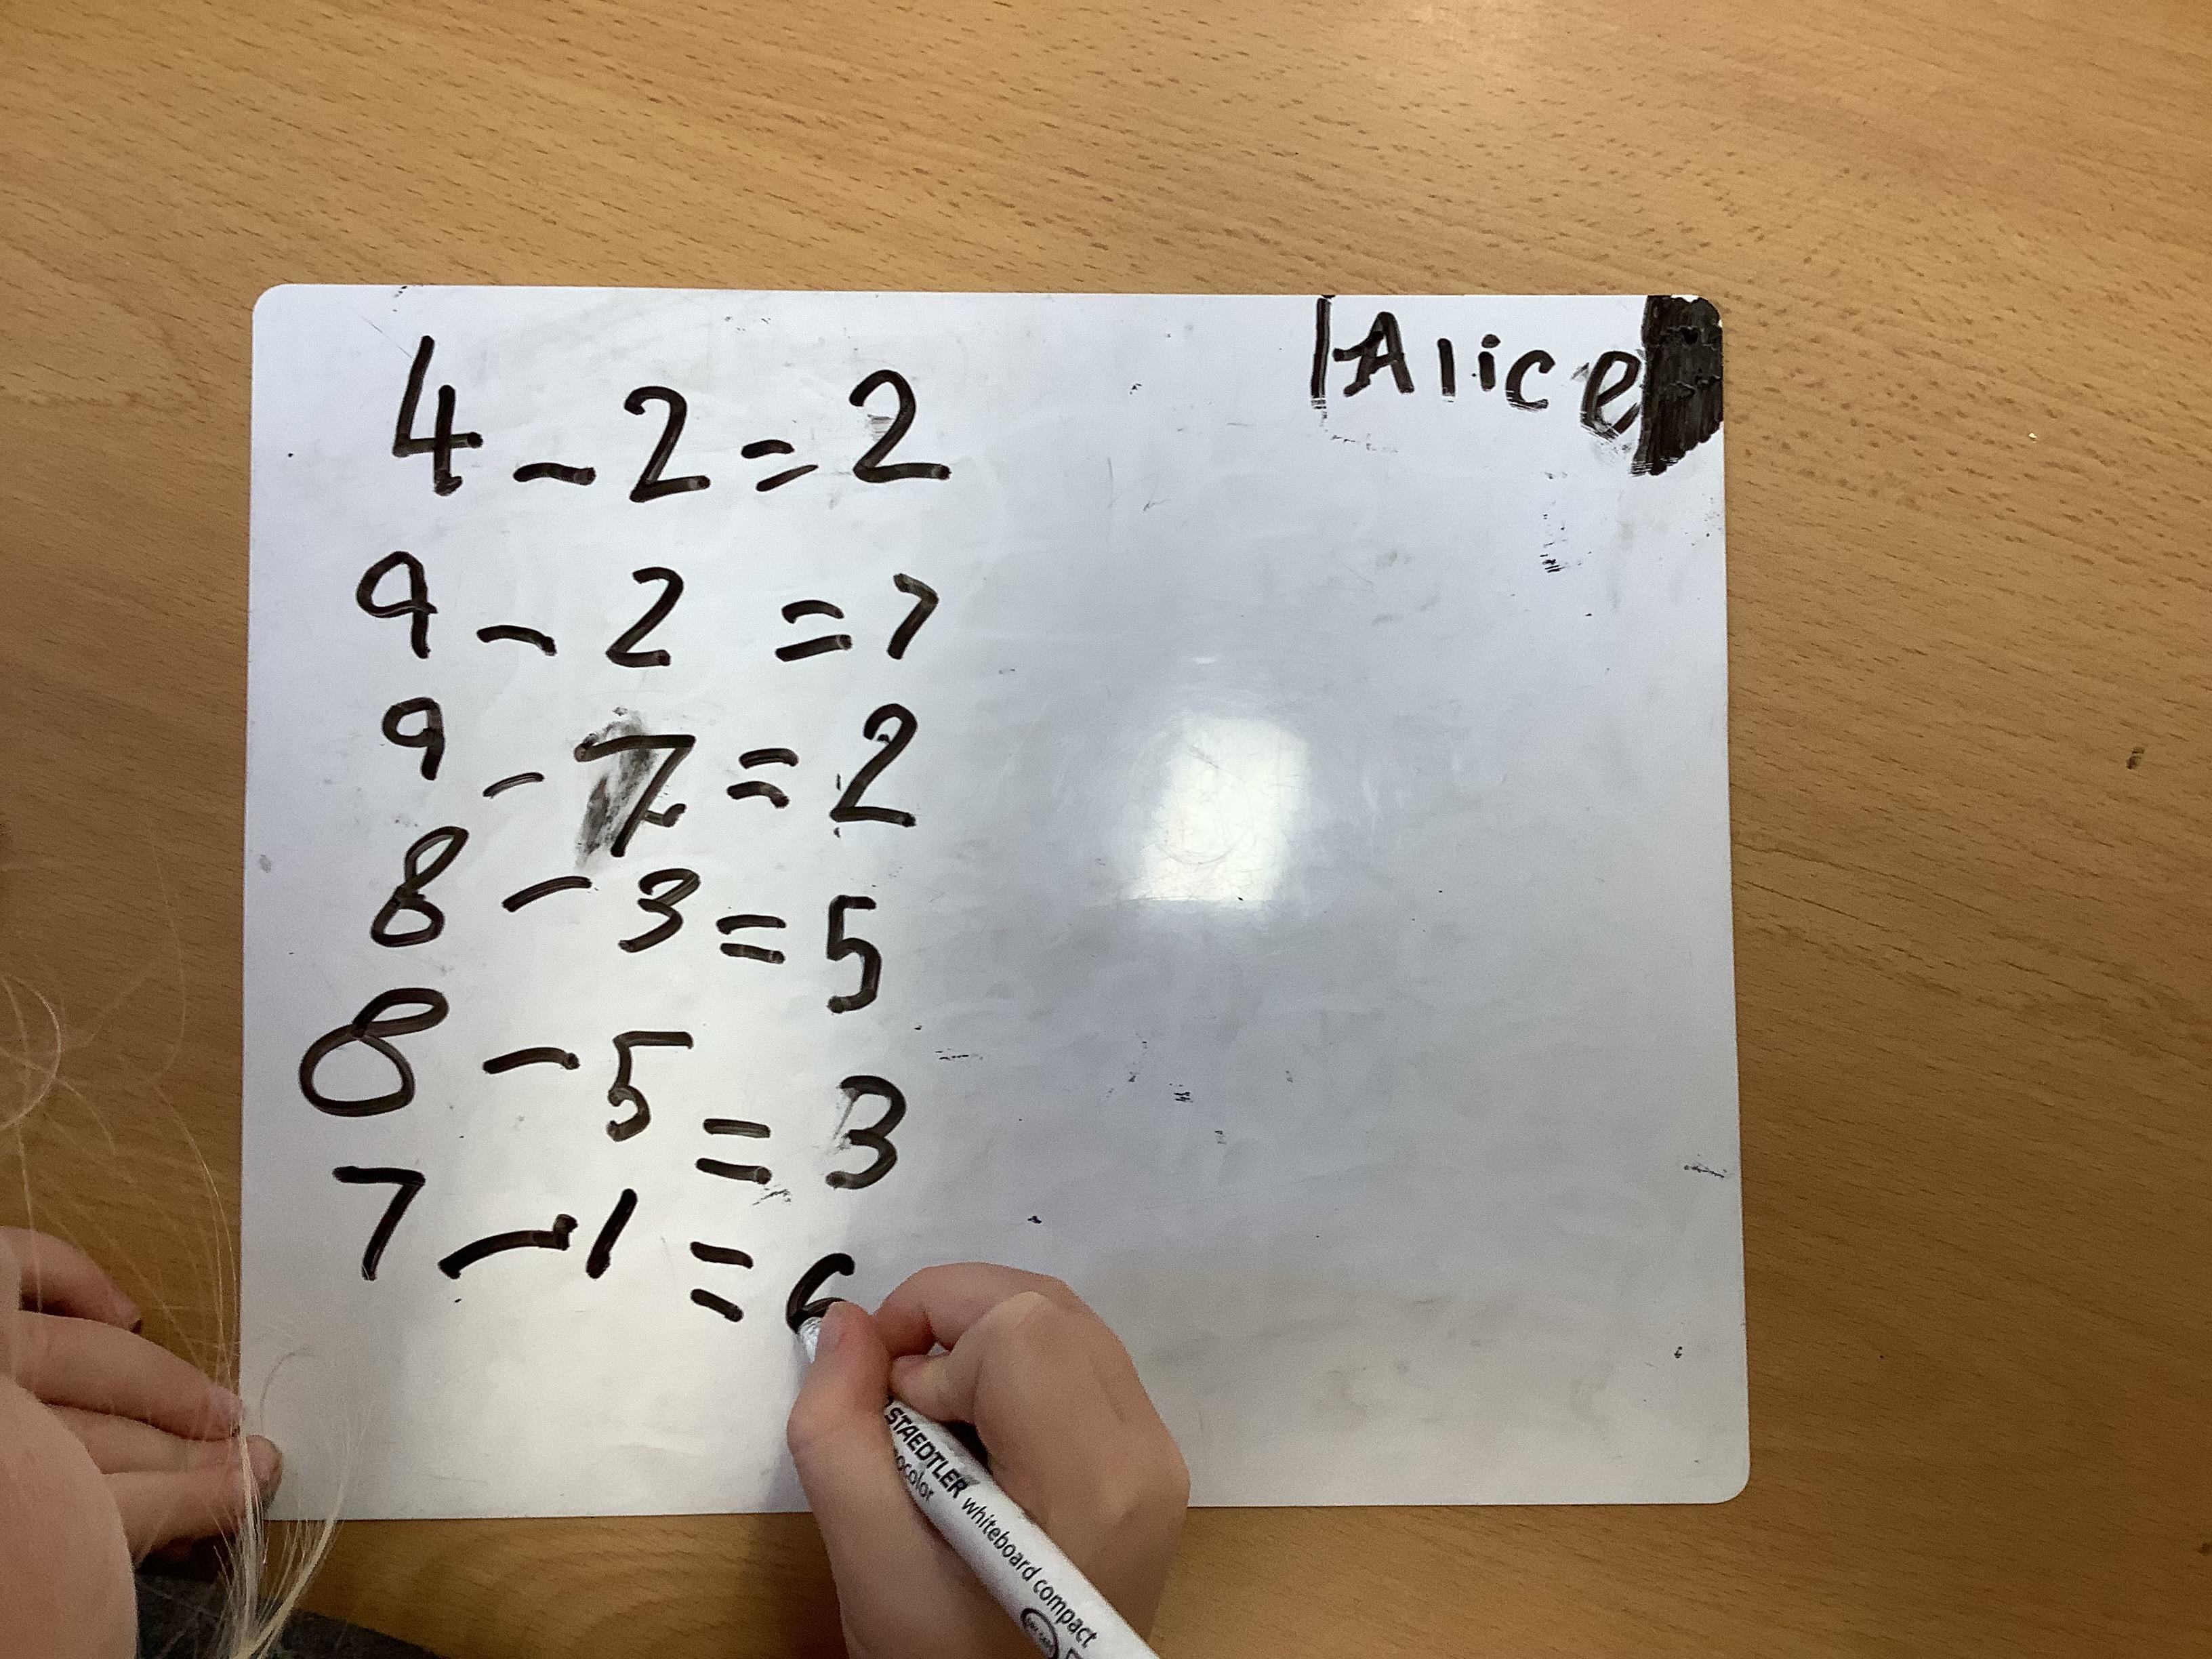 Alice
4 - 2 = 2
9 - 2 = 7
9 - 7 = 2
8 - 3 = 5
8 - 5 = 3
7 - 1 = 6
STAEDTLER
whiteboard compact